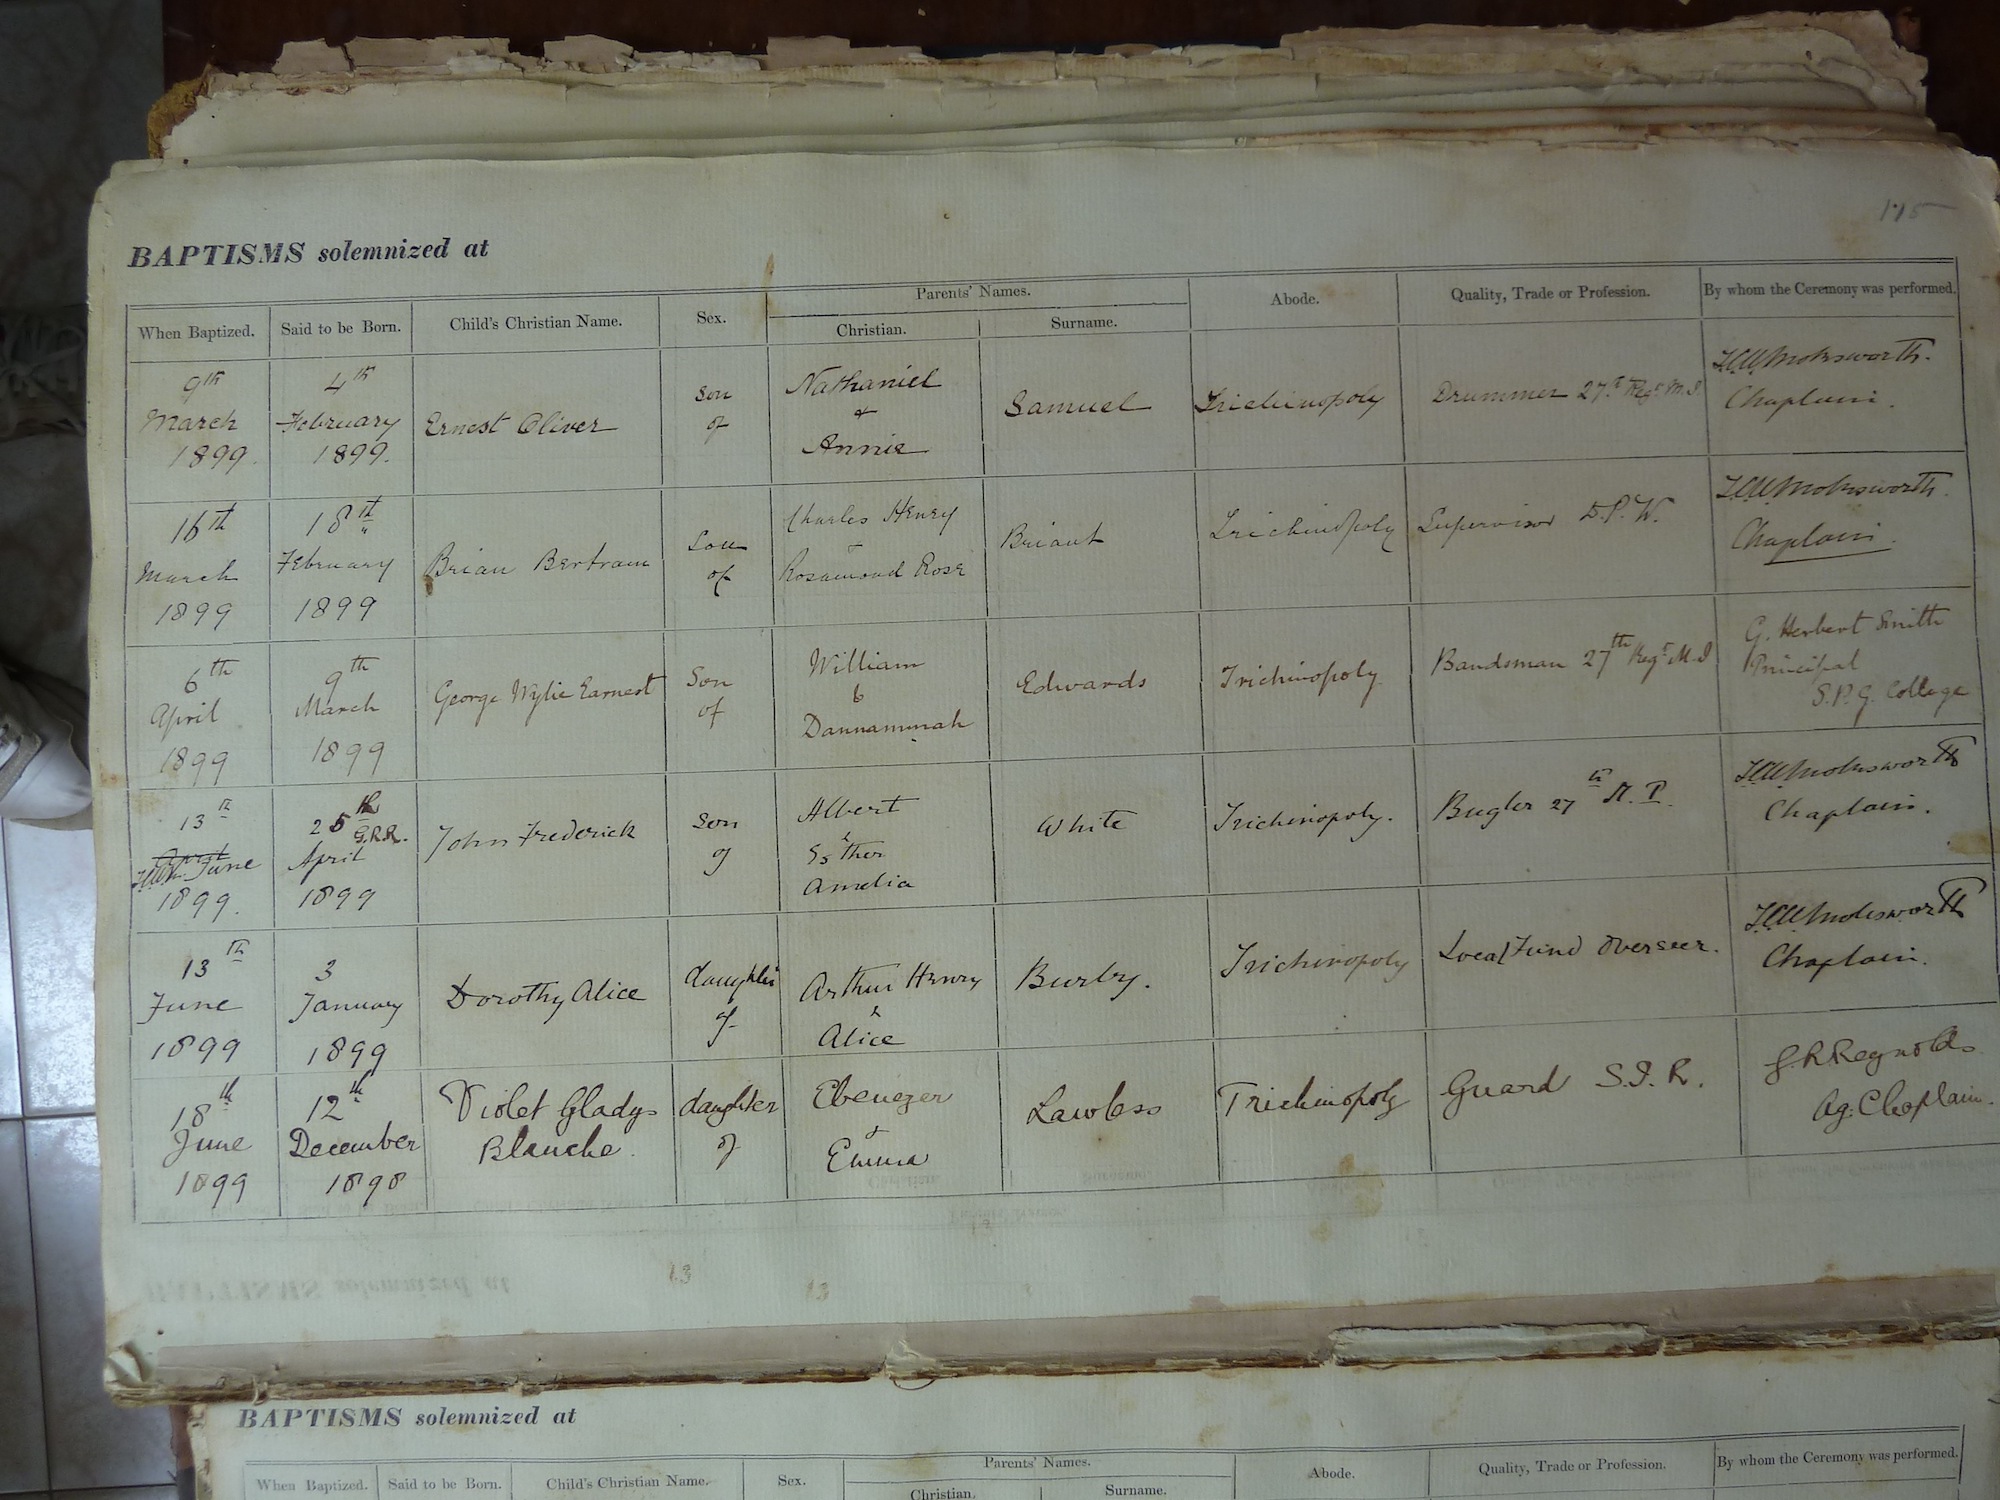 175
BAPTISMS solemnized at
When Baptized.
Said to be Born.
Child's Christian Name.
Sex.
Parents' Names.
Christian.
Surname.
Abode.
Quality, Trade or Profession.
By whom the Ceremony was performed.
9th
March
1899.
4th
February
1899.
Ernest Oliver
Son
of
Nathaniel
&
Annie
Samuel
Trichinopoly
Drummer 27th Regt M.I.
Molesworth.
Chaplain.
16th
March
1899
18th
February
1899
Brian Bertram
Son
of
Charles Henry
Rosamond Rose
Briant
Trichinopoly
Supervisor D.P.W.
Molesworth.
Chaplain.
6th
April
1899
9th
March
1899
George Wylie Earnest
Son
of
William
&
Dannammah
Edwards
Trichinopoly
Bandsman 27th Regt M.I
G. Herbert Smith
Principal
S.P.G. College
13th
June
1899.
25th
G.R.R.
April
1899
John Frederick
Son
of
Albert
&
Esther
Amelia
White
Trichinopoly.
Bugler 27th M.I.
Molesworth
Chaplain.
13th
June
1899
3
January
1899
Dorothy Alice
daughter
of
Arthur Henry
&
Alice
Burby.
Trichinopoly
Local Fund Overseer.
Molesworth
Chaplain.
18th
June
1899
12th
December
1898
Violet Gladys
Blanche.
daughter
of
Ebenezer
&
Emma
Lawless
Trichinopoly
Guard S.I.R.
G.R.Reynolds
Ag. Chaplain.
13
13
BAPTISMS solemnized at
When Baptized.
Said to be Born.
Child's Christian Name.
Sex.
Parents' Names.
Christian.
Surname.
Abode.
Quality, Trade or Profession.
By whom the Ceremony was performed.